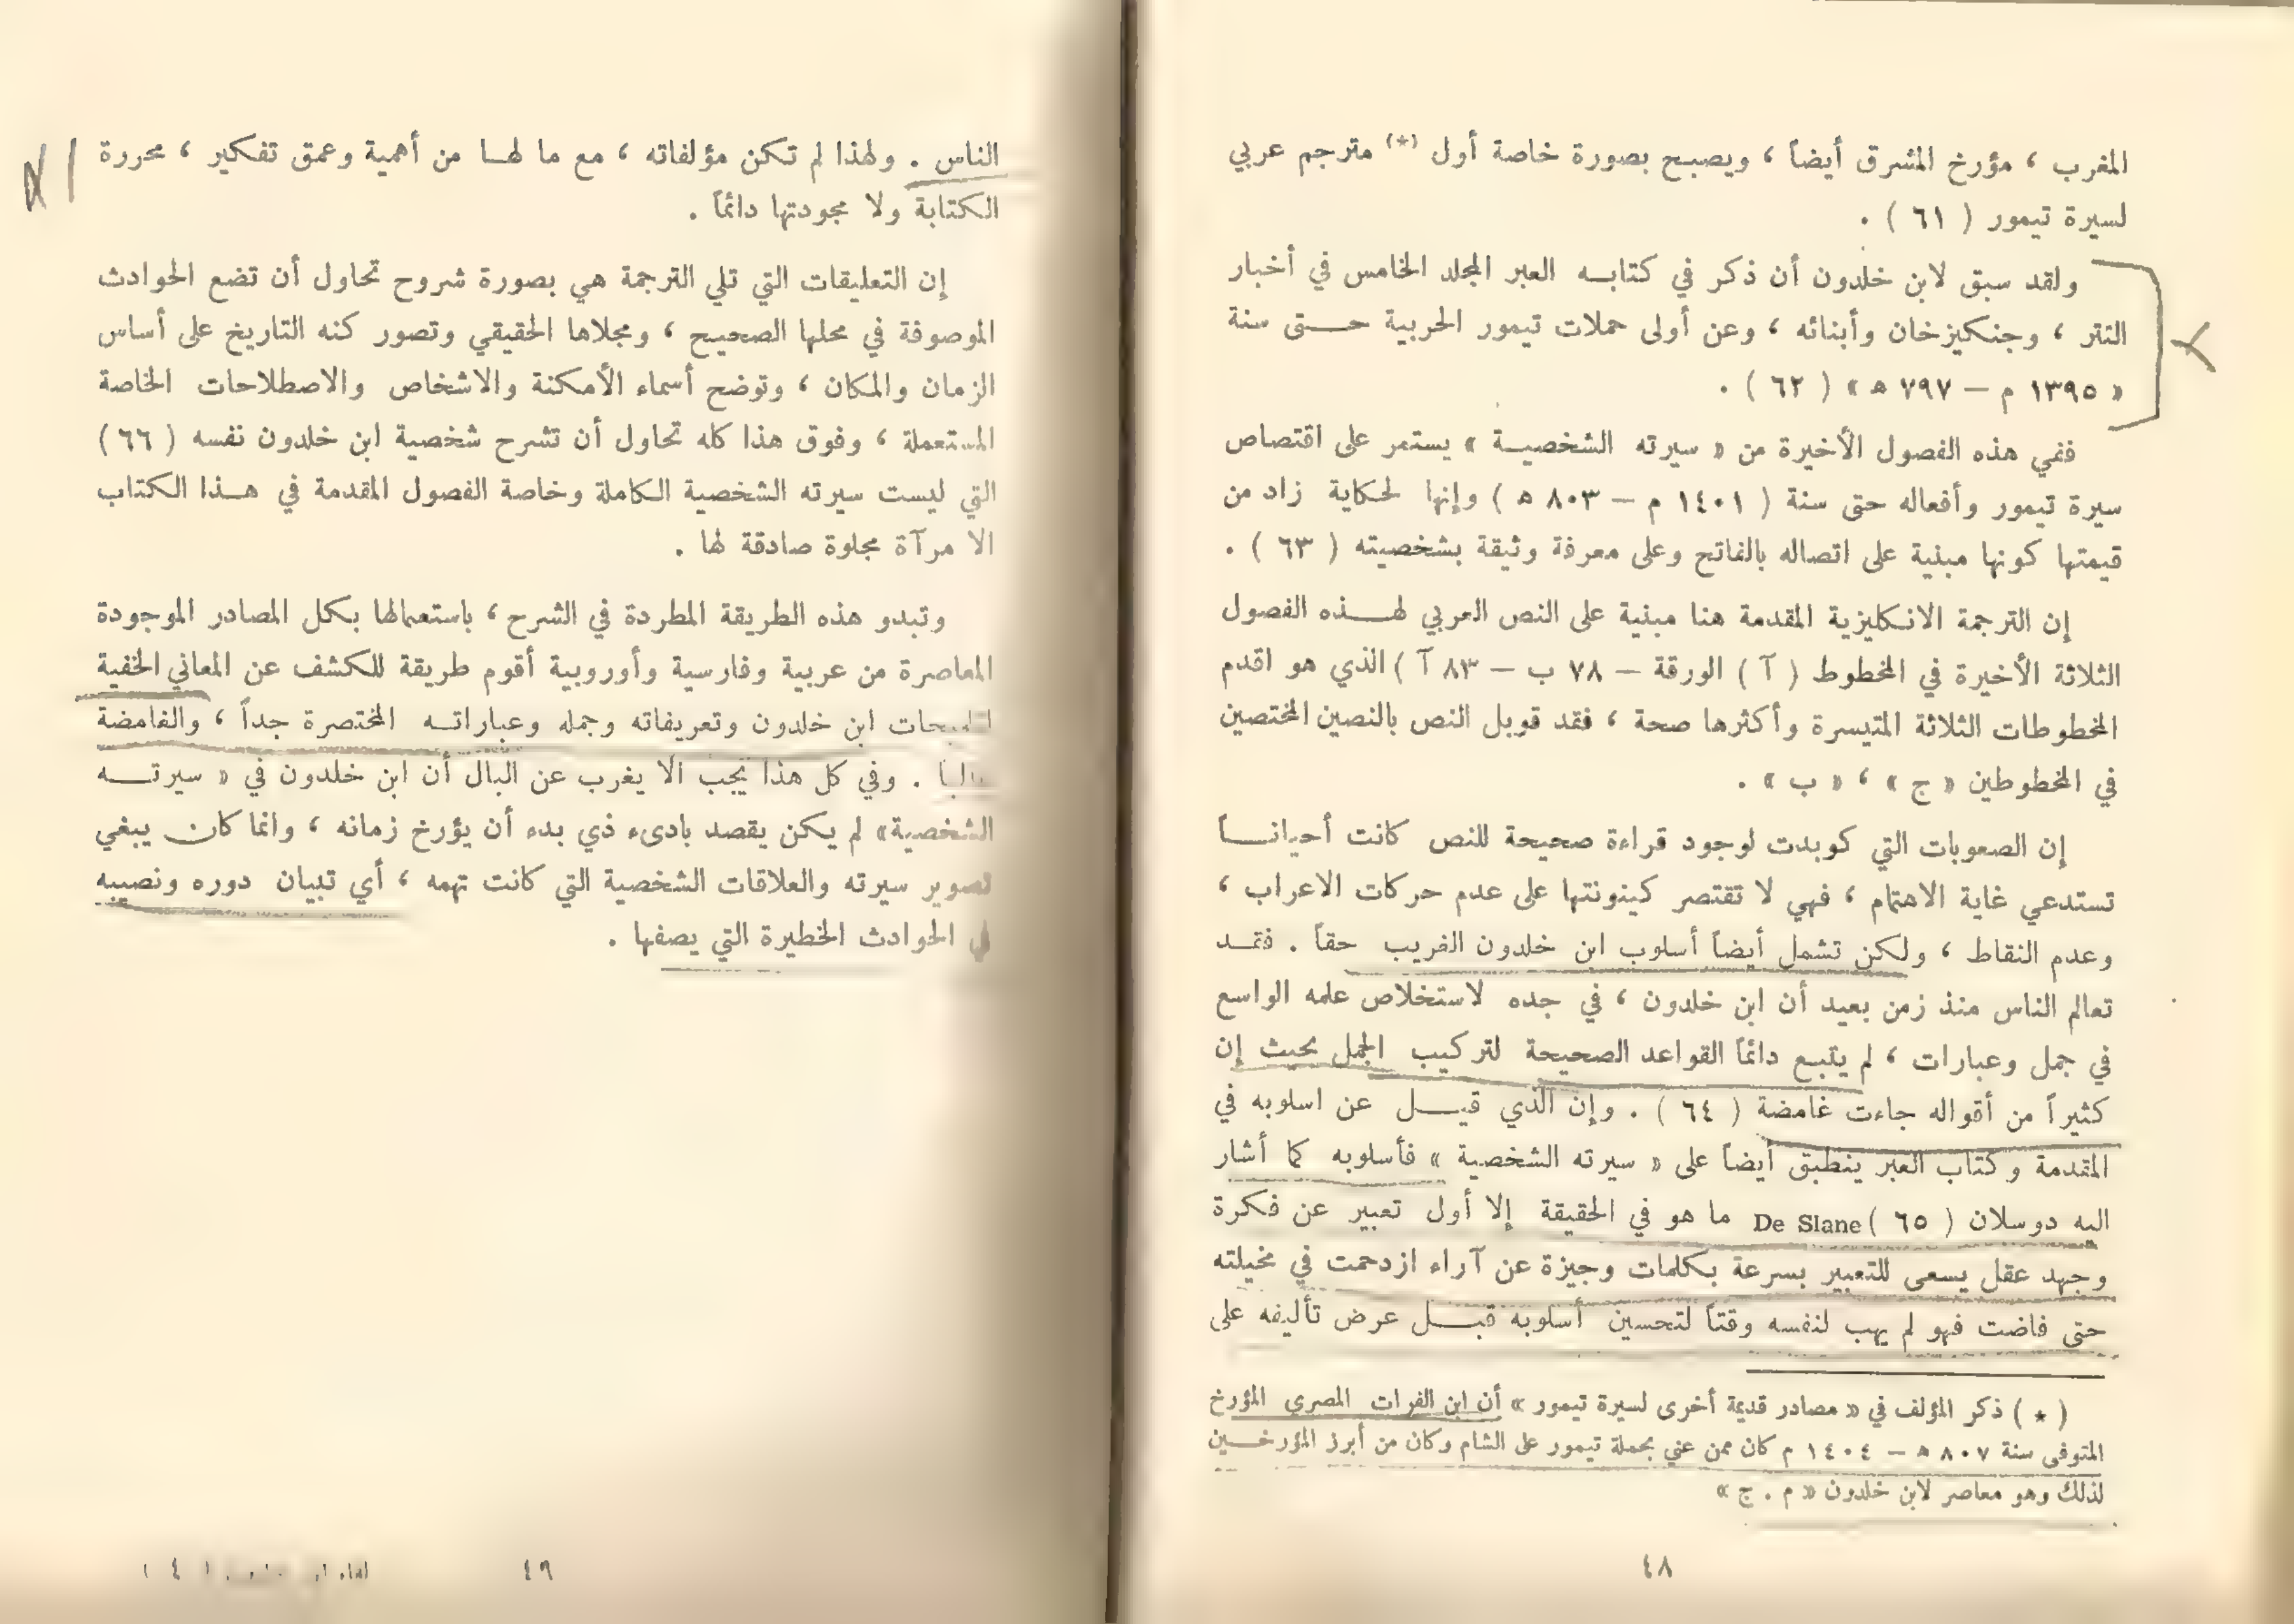 المغرب ، مؤرخ المشرق أيضاً ، ويصبح بصورة خاصة أول (*) مترجم عربي
لسيرة تيمور ( ٦١ ) .
ولقد سبق لابن خلدون أن ذكر في كتابه العبر المجلد الخامس في أخبار
التتر ، وجنكيزخان وأبنائه ، وعن أولى حملات تيمور الحربية حتى سنة
« ١٣٩٥ م – ٧٩٧ ه » ( ٦٢ ) .
ففي هذه الفصول الأخيرة من « سيرته الشخصية » يستمر على اقتصاص
سيرة تيمور وأفعاله حتى سنة ( ١٤٠١ م – ٨٠٣ ه ) وإنها لحكاية زاد من
قيمتها كونها مبنية على اتصاله بالفاتح وعلى معرفة وثيقة بشخصيته ( ٦٣ ) .
إن الترجمة الانكليزية المقدمة هنا مبنية على النص العربي لهذه الفصول
الثلاثة الأخيرة في المخطوط ( آ ) الورقة – ٧٨ ب – ٨٣ آ ) الذي هو اقدم
المخطوطات الثلاثة المتيسرة وأكثرها صحة ، فقد قوبل النص بالنصين المختصين
في المخطوطين « ج » ، « ب » .
إن الصعوبات التي كوبدت لوجود قراءة صحيحة للنص كانت أحياناً
تستدعي غاية الاهتمام ، فهي لا تقتصر كينونتها على عدم حركات الاعراب ،
وعدم النقاط ، ولكن تشمل أيضاً أسلوب ابن خلدون الغريب حقاً . فقد
تعالم الناس منذ زمن بعيد أن ابن خلدون ، في جده لاستخلاص علمه الواسع
في جمل وعبارات ، لم يتبع دائماً القواعد الصحيحة لتركيب الجمل بحيث إن
كثيراً من أقواله جاءت غامضة ( ٦٤ ) . وإن الذي قيل عن اسلوبه في
المقدمة وكتاب العبر ينطبق أيضاً على « سيرته الشخصية » فأسلوبه كما أشار
اليه دوسلان De Slane ( ٦٥ ) ما هو في الحقيقة إلا أول تعبير عن فكرة
وجهد عقل يسعى للتعبير بسرعة بكلمات وجيزة عن آراء ازدحمت في مخيلته
حتى فاضت فهو لم يهب لنفسه وقتاً لتحسين أسلوبه قبل عرض تأليفه على
( * ) ذكر المؤلف في « مصادر قديمة أخرى لسيرة تيمور » أن ابن الفرات المصري المؤرخ
المتوفى سنة ٨٠٧ ه – ١٤٠٤ م كان ممن عني بحملة تيمور على الشام وكان من أبرز المؤرخين
لذلك وهو معاصر لابن خلدون « م . ج »
٤٨
الناس . ولهذا لم تكن مؤلفاته ، مع ما لها من أهمية وعمق تفكير ، محررة
الكتابة ولا مجودتها دائماً .
إن التعليقات التي تلي الترجمة هي بصورة شروح تحاول أن تضع الحوادث
الموصوفة في محلها الصحيح ، ومجلاها الحقيقي وتصور كنه التاريخ على أساس
الزمان والمكان ، وتوضح أسماء الأمكنة والاشخاص والاصطلاحات الخاصة
المستعملة ، وفوق هذا كله تحاول أن تشرح شخصية ابن خلدون نفسه ( ٦٦ )
التي ليست سيرته الشخصية الكاملة وخاصة الفصول المقدمة في هذا الكتاب
الا مرآة مجلوة صادقة لها .
وتبدو هذه الطريقة المطردة في الشرح ، باستعمالها بكل المصادر الموجودة
المعاصرة من عربية وفارسية وأوروبية أقوم طريقة للكشف عن المعاني الخفية
ابن خلدون وتعريفاته وجمله وعباراته المختصرة جداً ، والغامضة
. وفي كل هذا يجب الا يغرب عن البال أن ابن خلدون في « سيرته
الشخصية » لم يكن يقصد بادىء ذي بدء أن يؤرخ زمانه ، وانما كان يبغي
تصوير سيرته والعلاقات الشخصية التي كانت تهمه ، أي تبيان دوره ونصيبه
في الحوادث الخطيرة التي يصفها .
٤٩
( ٤ )